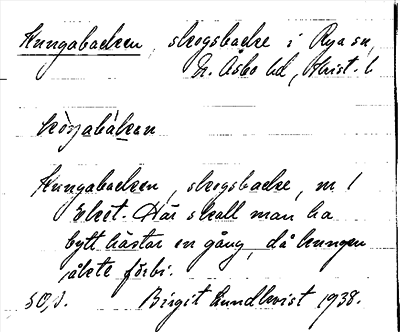 Kungabacken, skogsbacke i Rya sn,
N. Åsbo hd, Krist. l
Kungabacken, skogsbacke, nr 1
Eket. Där skall man ha
bytt hästar en gång, då kungen
åkte förbi.
Birgit Lundkvist 1938.